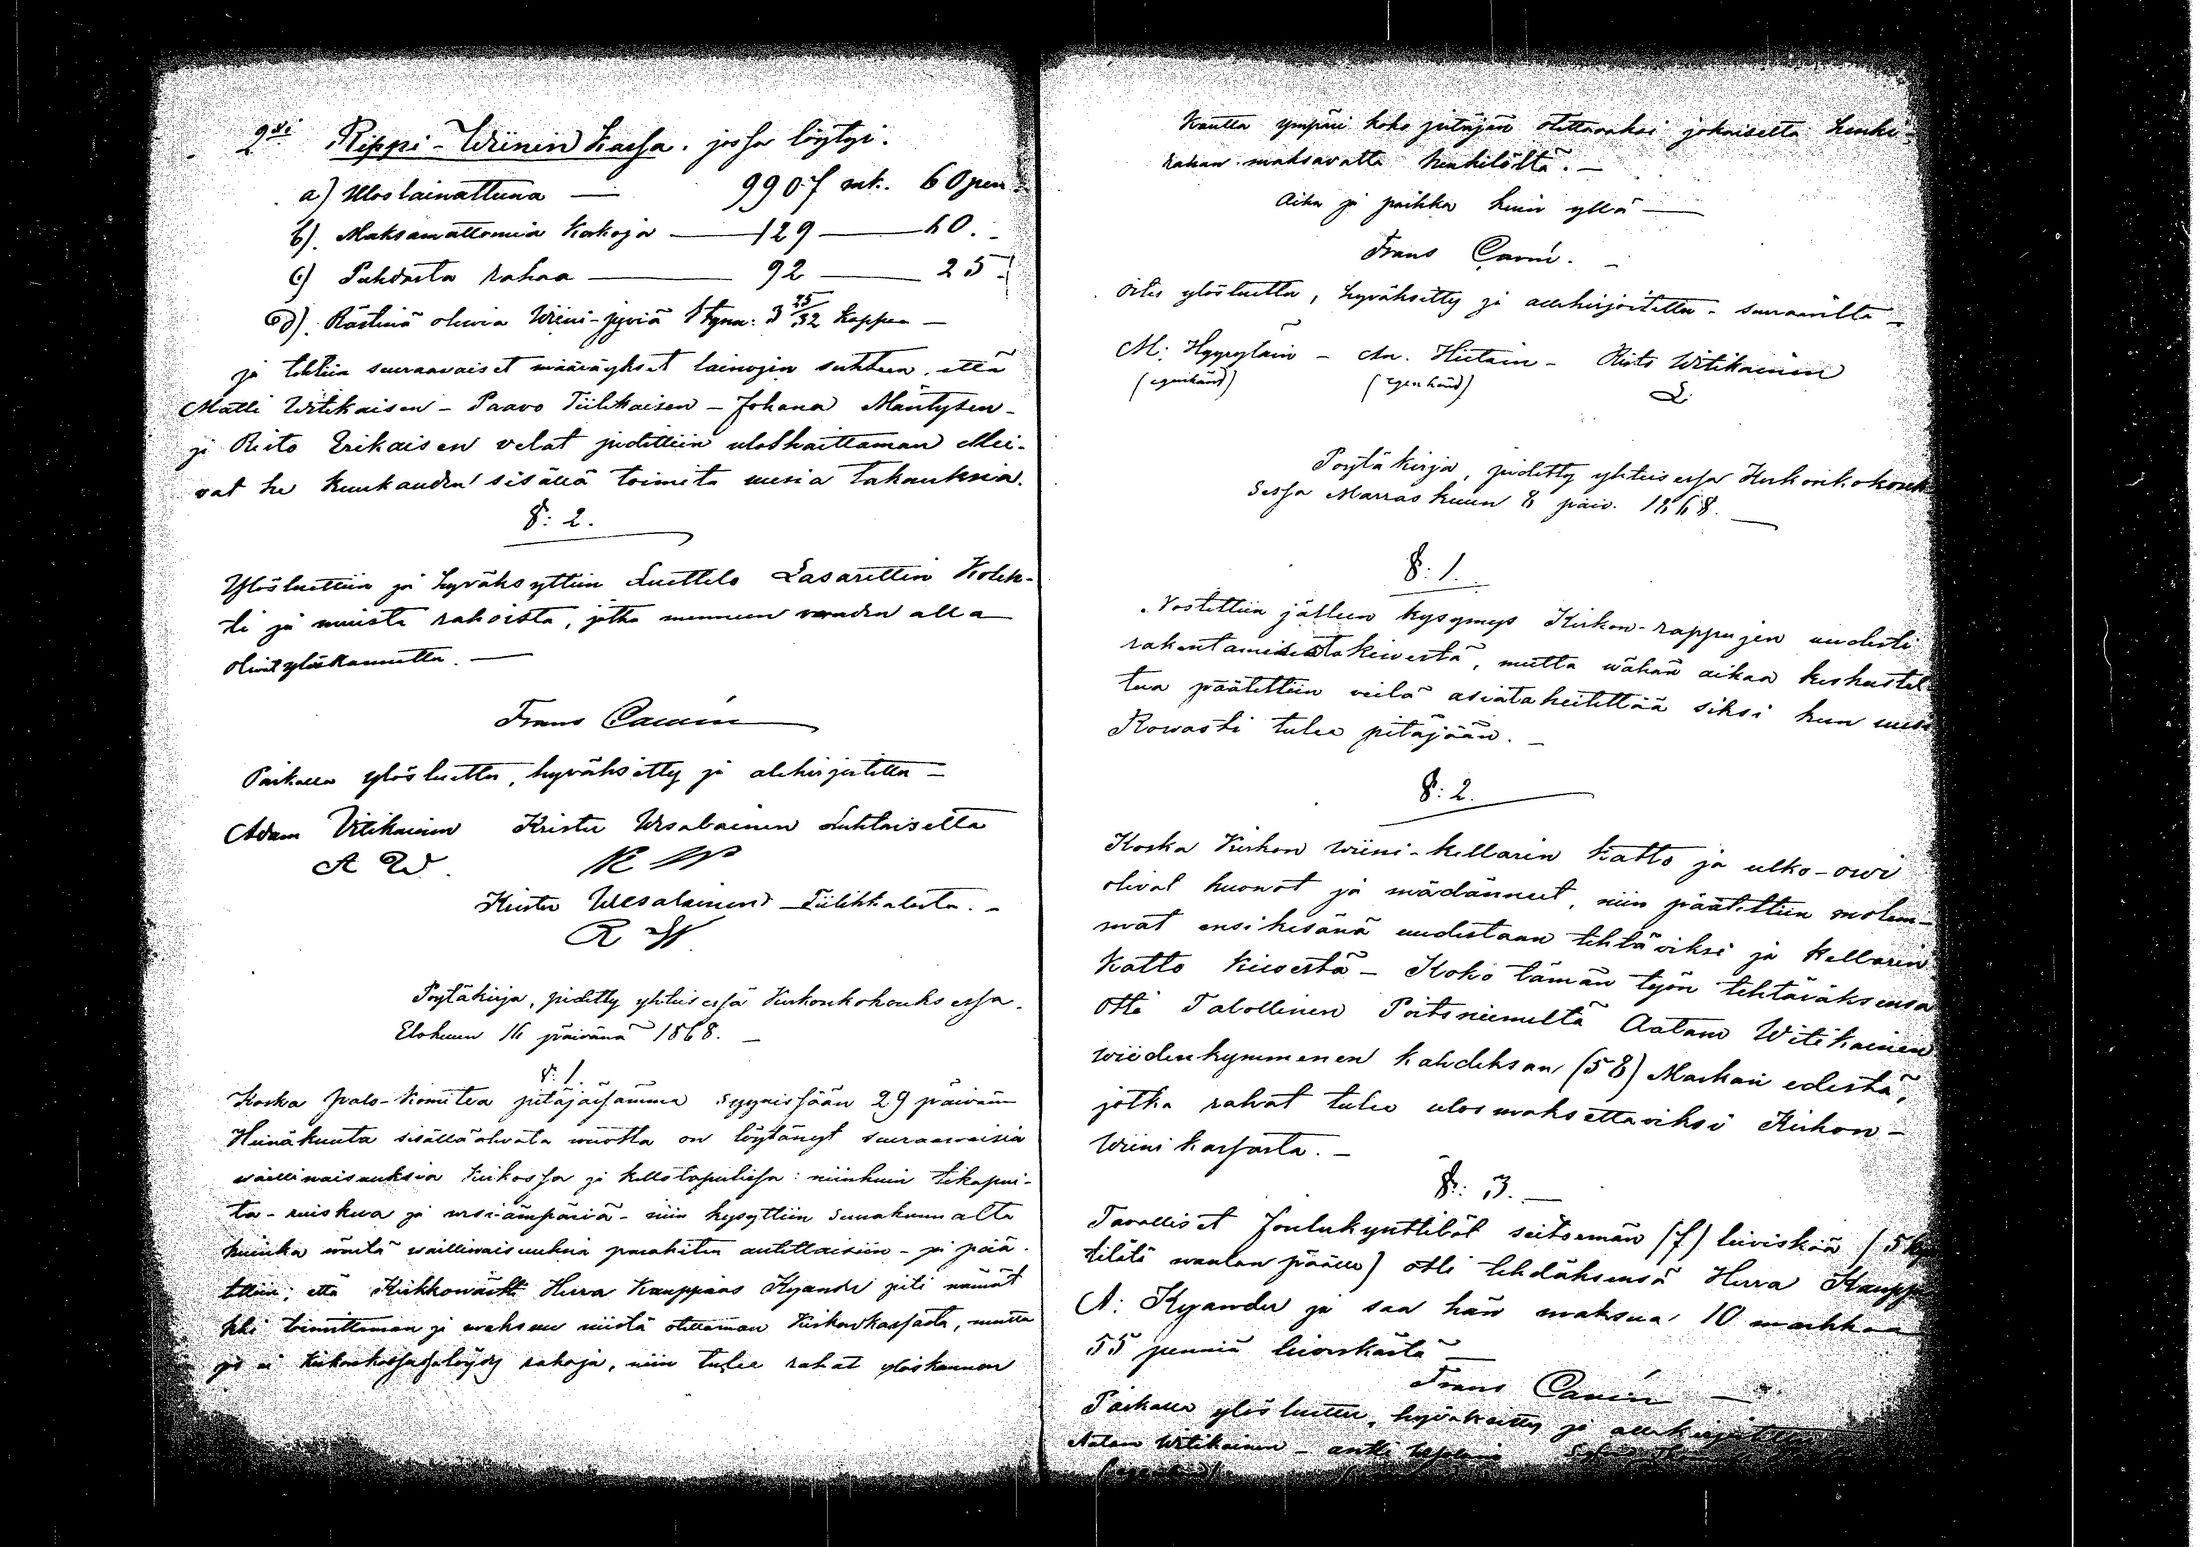 2ksi Rippi-Wiinin Kassa. jossa löytyi.
a) Uloslainattuna — 9907 mk. 60 pen.
b). Maksamattomia Korkoja — 129 — 60.
c) Puhdasta rahaa — 92 — 25.
d). Rästinä olevia Wiini-jyviä 1 tynn: 3 25/32 Kappaa —
ja tehtiin seuraavaiset määräykset lainojen suhteen, että
Matti Witikaisen - Paavo Tiilikaisen - Johana Mäntysen -
ja Risto Erikaisen velat pidettiin uloshaittaman ellei-
vat he Kuukauden sisällä toimita uusia takauksia.
§: 2.
Ylösluettiin ja hyväksyttiin Luettelo Lasarettin Koleh-
ti ja muista rahoista, jotka menneen vuoden alla
olivat ylöskannetta. —
Frans Cawén
Paikalla ylösluettu, hyväksitty ja alekirjutettu —
Adam Vitikainen Krister Wesalainen Luhtaisella
A W. K W
Krister Wesalainen - Tiilikkalasta. -
K W
Pöytäkirja, pidetty yhteisessä Kirkonkokouksessa
Elokuun 16 päivänä 1868. —
§: 1
Koska palo-Komitea pitäjäissämme syynissään 29 päivänä
Heinäkuuta sisälläolevata vuotta on löytänyt seuraavaisia
vaillinaisuuksia Kirkossa ja kellotapulissa: niinkuin tikapui-
ta - ruiskua ja vesi-ämpäriä - niin kysyttiin seurakunnalta
kuinka näitä vaillinaisuuksia parahiten autettaisiin - ja pää-
tettiin; että Kirkkowärti Herra Kauppias Kyander piti nämät
toimittaman ja maksun niistä ottaman Kirkonkassasta, mutta
jos ei Kirkonkassassa löydy rahoja, niin tulee rahat yloskannon
Kautta ympäri koko pitäjän otettavaksi jokaiselta henki-
rahan maksavalta henkilöltä. —
Aika ja paikka kuin yllä —
Frans Cawén. —
Oites ylösluettu, hyväksitty ja allekirjoitettu - seuraavilta —
M: Hyyryläin - An. Hietain - Risto Witikainen
(egenhänd) (egenhänd)
Pöytäkirja, pidetty yhteisessa Kirkonkokouk
sessa Marraskuun 8 päiv. 1868. —
§: 1.
Nostettiin jälleen kysymys Kirkon-rappujen uudesti
rakentamisesta kivestä, mutta vähän aikaa keskustel-
tua päätettiin vielä asiata heitettää siksi kun uusi
Rovasti tulee pitäjään. —
§: 2.
Koska Kirkon Wiini-kellarin katto ja ulko-owi
olivat huonot ja mädänneet, niin päätettiin molem-
mat ensi kesänä uudestaan tehtäviksi ja kellarin
katto kivestä - Koko tämän työn tehtäväksensä
otti Talollinen Poitsniemeltä Aatam Witikainen
wiidenkymmenen kahdeksan (58) Markan edestä,
jotka rahat tulee ulosmaksettaviksi Kirkon-
Wiini kassasta. —
§: 3. —
Tavalliset Joulukynttilät seitsemän (7) leiviskää (5 kyn
tilätä naulan päälle) otti tehdäksensä Herra Kaupp
A: Kyander ja saa hän maksua 10 markkaa
55 penniä leiviskästä —
Frans Cawén —
Paikalla ylösluettu, hyväksitty ja allekirjoitettu
Aatam Witikainen - Antti
(egenhänd)